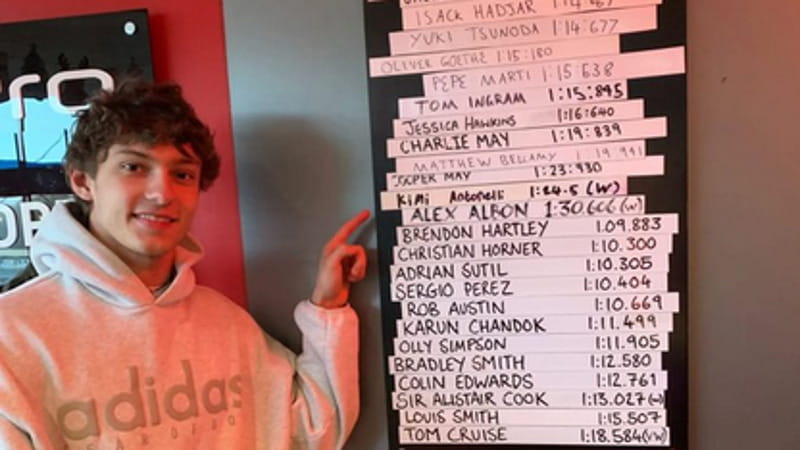 ISACK HADJAR
YUKI TSUNODA 1:14:677
OLIVER GOETHE 1:15:180
PEPE MARTI 1:15:638
TOM INGRAM 1:15:895
JESSICA HAWKINS 1:16:640
CHARLIE MAY 1:19:839
MATTHEW BELLAMY 1:19.941
COOPER MAY 1:23:930
KIMI Antonelli 1:24.5 (W)
ALEX ALBON 1:30.606 (W)
BRENDON HARTLEY 1.09.883
CHRISTIAN HORNER 1:10.300
ADRIAN SUTIL 1:10.305
SERGIO PEREZ 1:10.404
ROB AUSTIN 1:10.669
KARUN CHANDOK 1:11.499
OLLY SIMPSON 1:11.905
BRADLEY SMITH 1:12.580
COLIN EDWARDS 1:12.761
SIR ALISTAIR COOK 1:13.027(W)
LOUIS SMITH 1:15.507
TOM CRUISE 1:18.584(VW)
ro
adidas